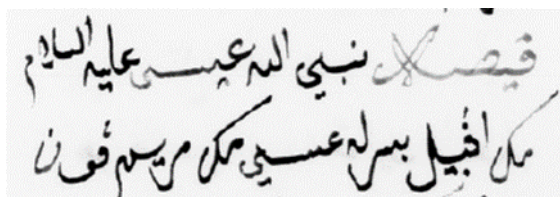 فصل نبي الله عيسى عليه السلام
مک افبيل بسرله عيسى مک مريم ڤون